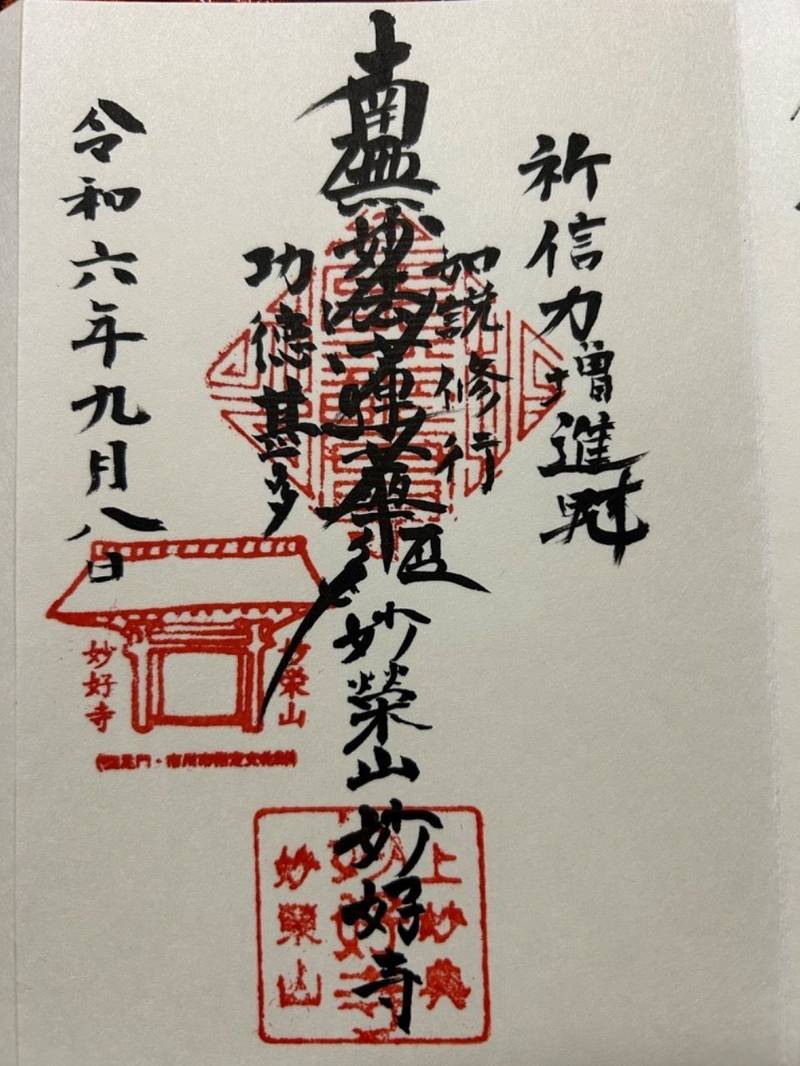 祈信力増進
如説修行
南無妙法蓮華経
妙榮山妙好寺
功徳甚多
令和六年九月八日
妙栄山
妙好寺
市川市指定文化財
上妙典
妙好寺
妙榮山